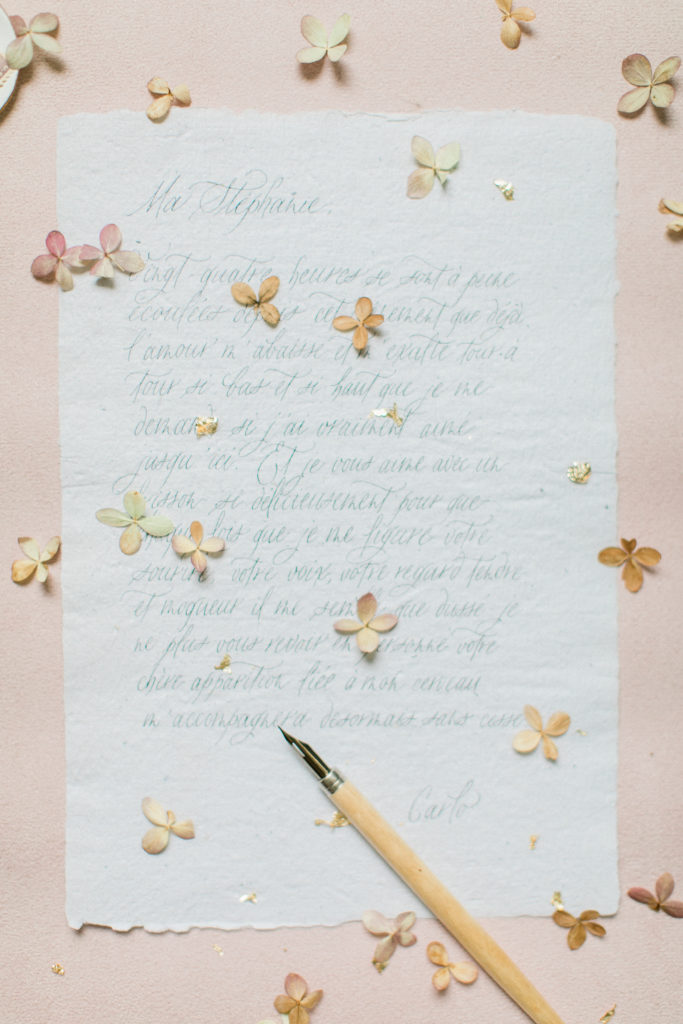 Ma Stéphanie,
Vingt-quatre heures se sont à peine
écoulées depuis cet que déjà
l'amour m'abaisse et m'exalte tour à
tour si bas et si haut que je me
si j'ai vraiment aimé
jusqu'ici. Et je vous aime avec un
si délicieusement pour que
fois que je me figure votre
sourire votre voix, votre regard tendre
et moqueur il me semble que dussé je
ne plus vous revoir en personne votre
chère apparition liée à mon cerveau
m'accompagnera désormais sans cesse
Carlo